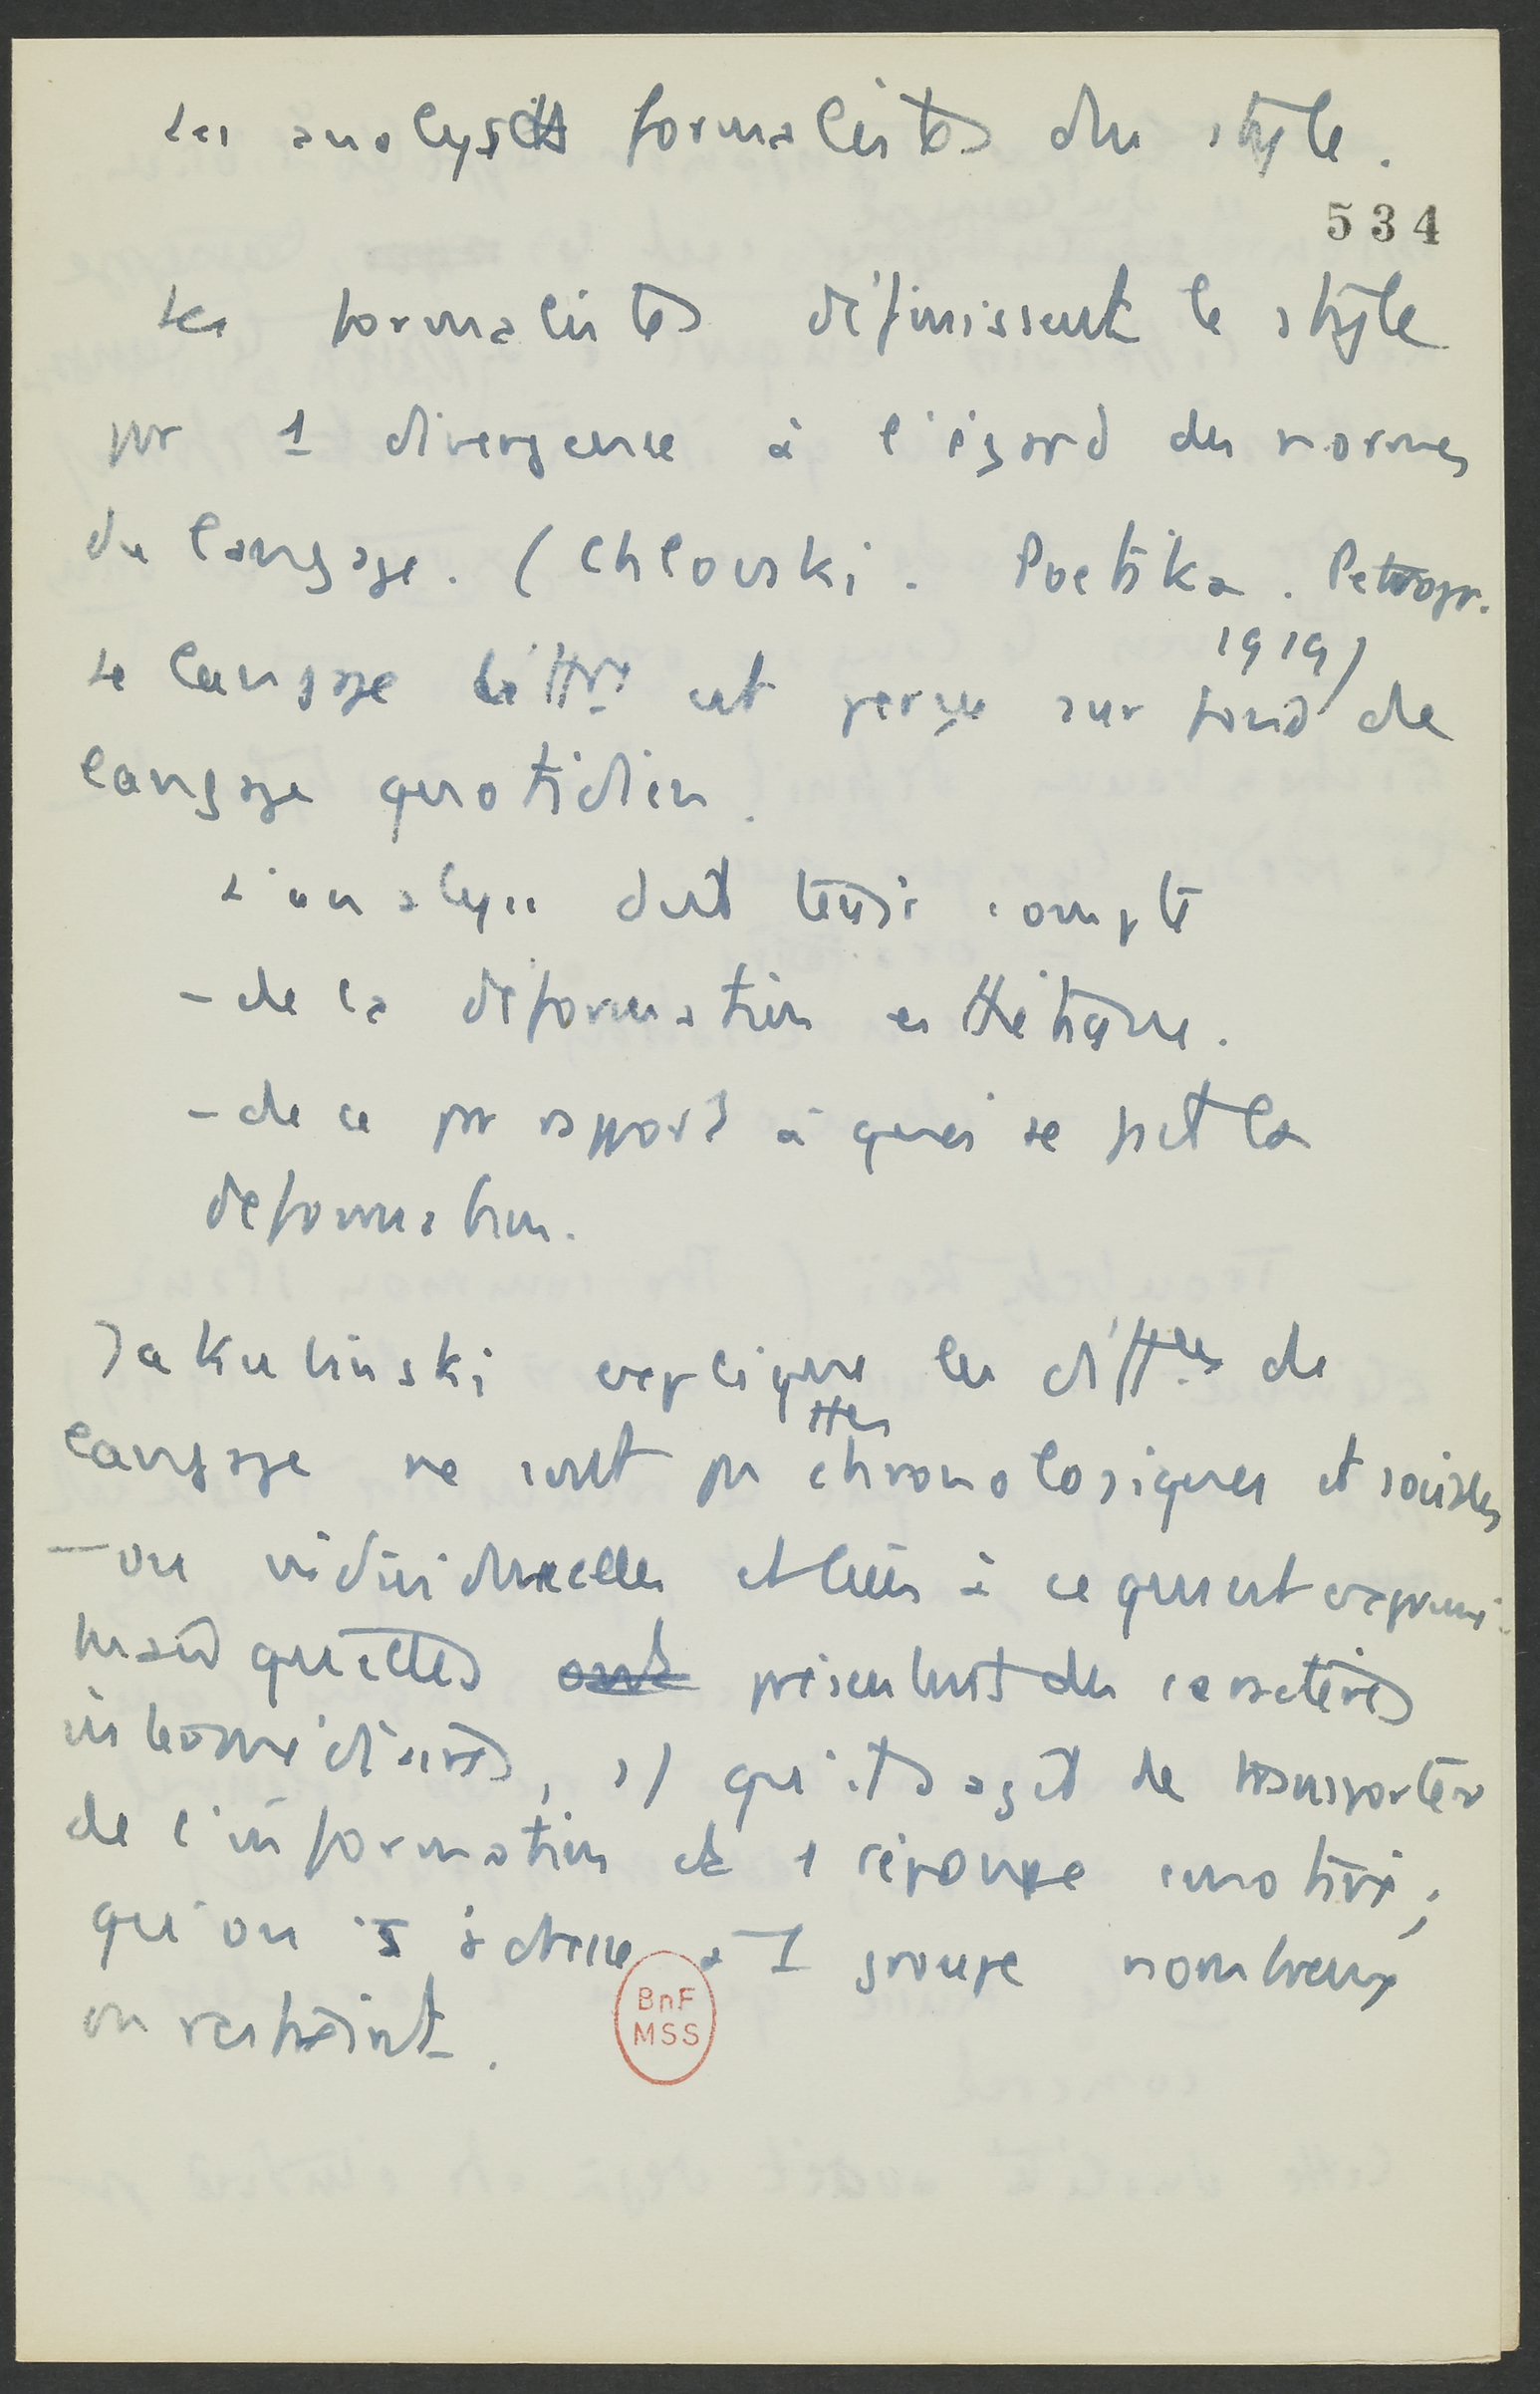 Les analyses formalistes du style.
534
Les formalistes définissent le style
par 1 divergence à l'égard des normes
du langage. (Chlovski. Poetika. Petrogr.
1919)
Le langage littre est perçu sur fond de
langage quotidien.
L'analyse doit tenir compte
- de la déformation esthétique.
- de ce par rapport à quoi se fait la
déformation.
Jakubinski explique les diffces de
langage ne sont pas chronologiques et sociales
- ou individuelles et liées à ce qui est exprimé.
mais qu'elles ont présentent des caractères
intermédiaires, s/ qu'il s'agit de transporter
de l'information et 1 réponse émotive ;
qu'on s'adresse à 1 groupe nombreux
ou restreint.
BnF
MSS